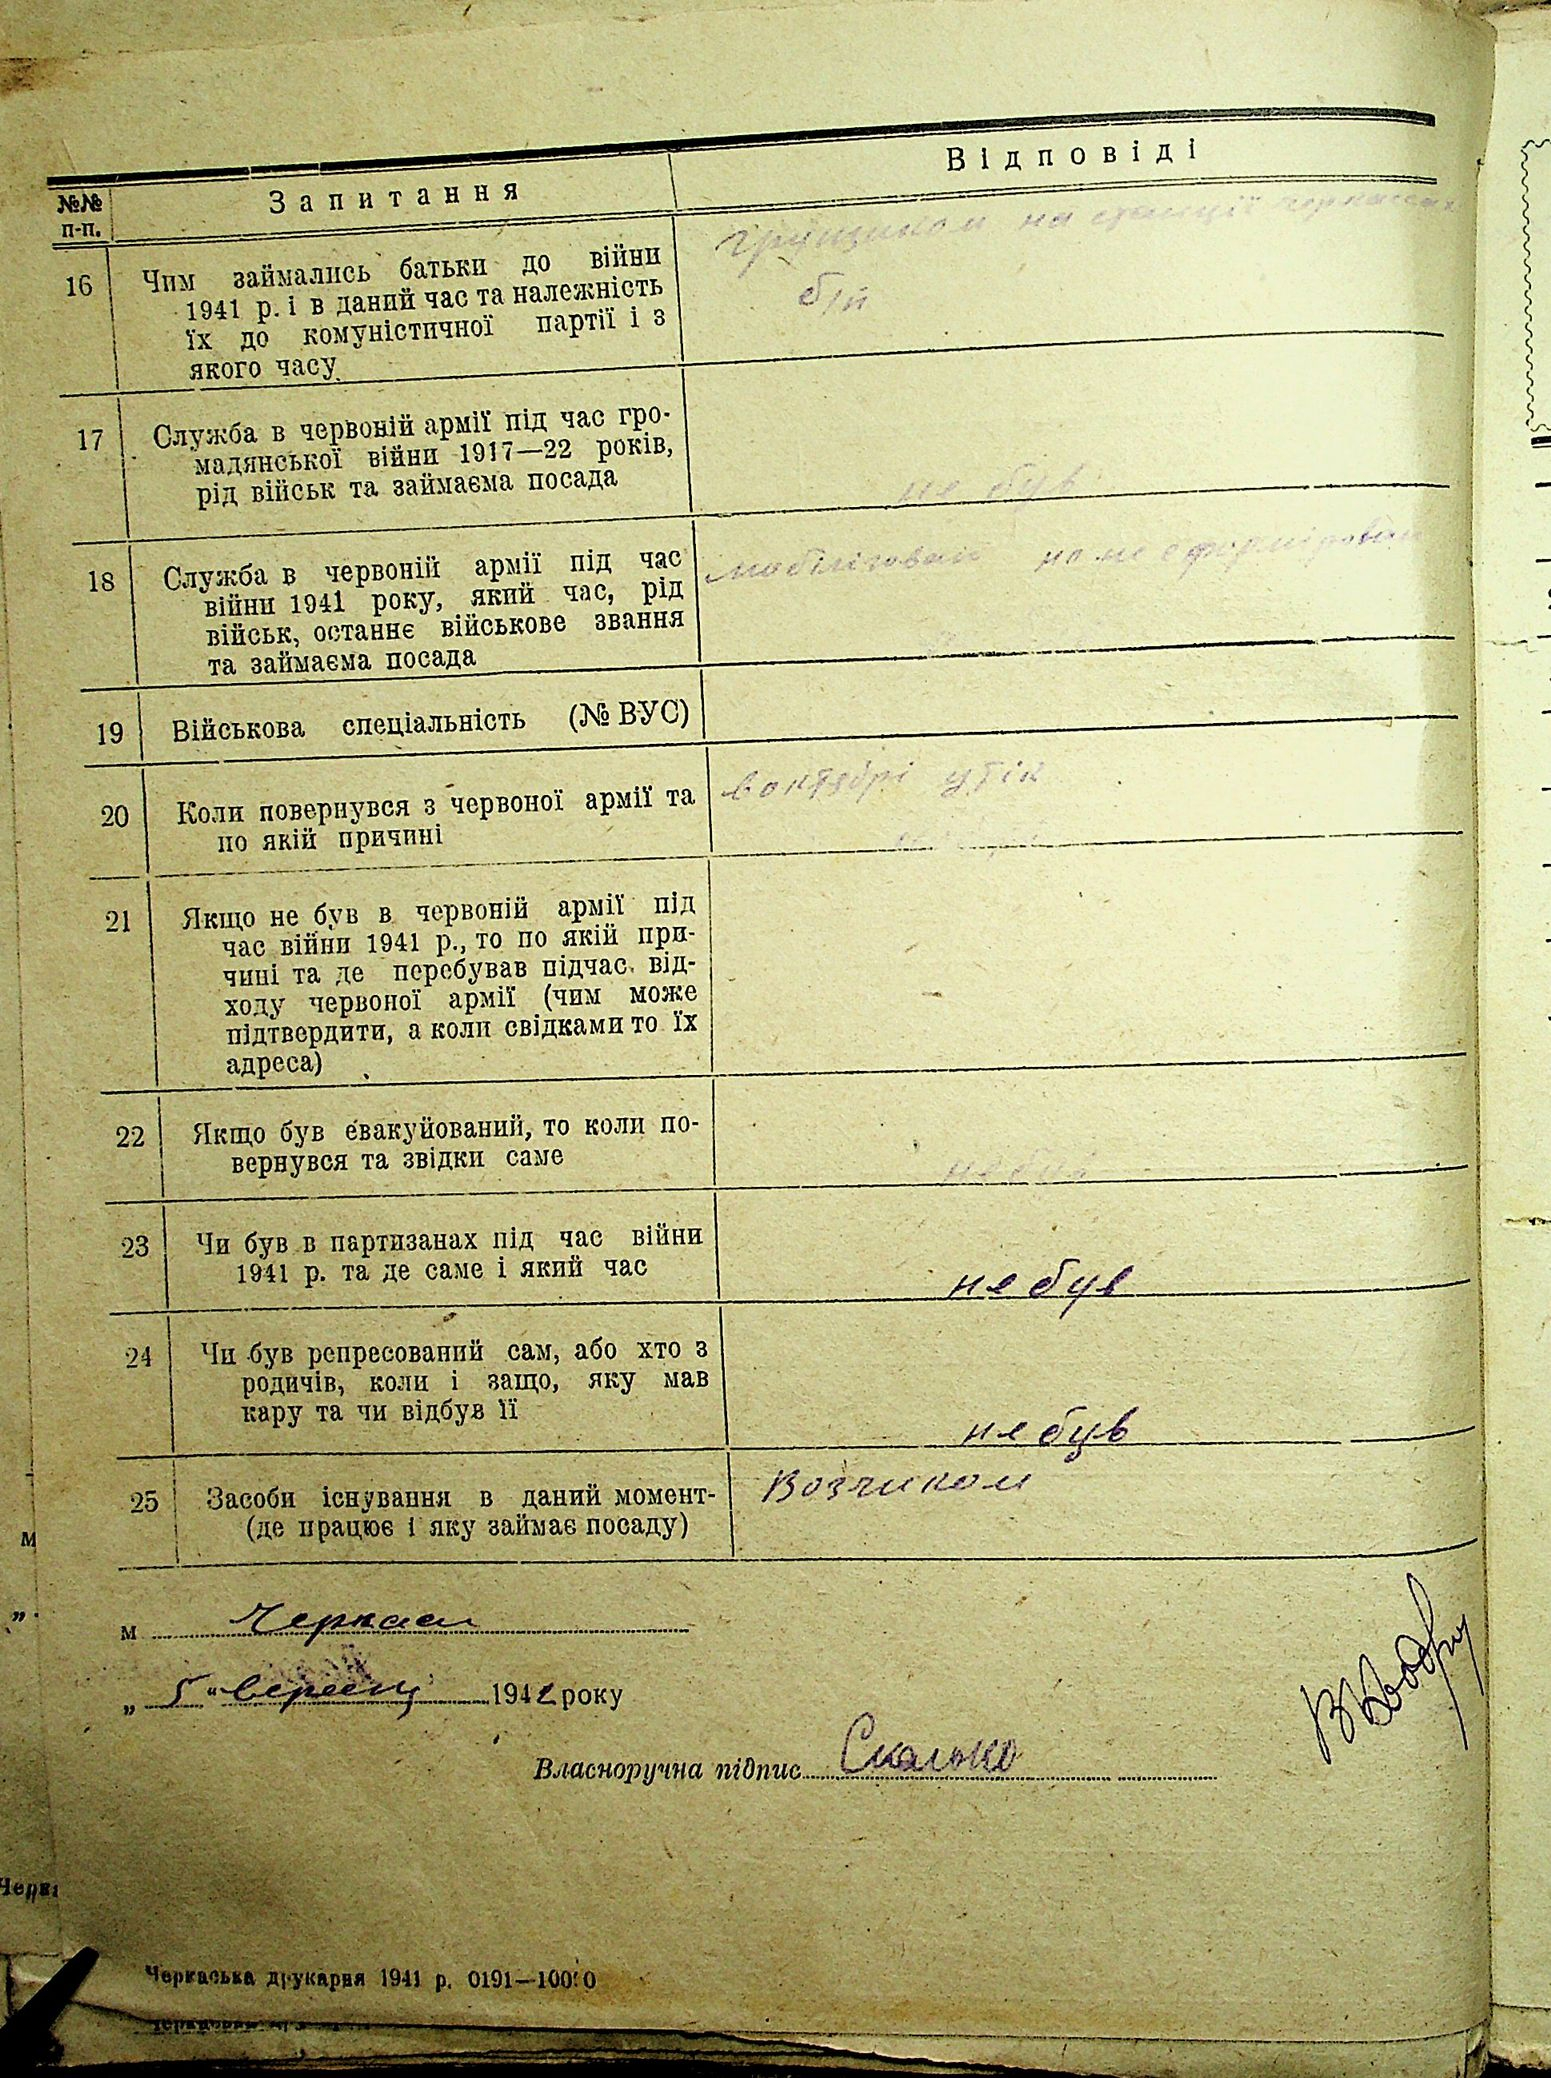 №№ п-п.
Запитання
Відповіді
16
Чим займались батьки до війни
1941 р. і в даний час та належність
їх до комуністичної партії і з
якого часу
на станції Черкаси
б/п
17
Служба в червоній армії під час гро-
мадянської війни 1917—22 років,
рід військ та займаєма посада
не був
18
Служба в червоній армії під час
війни 1941 року, який час, рід
військ, останнє військове звання
та займаєма посада
мобілізован но не сформірован
19
Військова спеціальність (№ ВУС)
20
Коли повернувся з червоної армії та
по якій причині
в октябрі утік
21
Якщо не був в червоній армії під
час війни 1941 р., то по якій при-
чині та де перебував підчас від-
ходу червоної армії (чим може
підтвердити, а коли свідками то їх
адреса)
22
Якщо був евакуйований, то коли по-
вернувся та звідки саме
не був
23
Чи був в партизанах під час війни
1941 р. та де саме і який час
не був
24
Чи був репресований сам, або хто з
родичів, коли і защо, яку мав
кару та чи відбув її
не був
25
Засоби існування в даний момент-
(де працює і яку займає посаду)
Возчиком
м Черкаси
„ 5 " 1942 року
Власноручна підпис
Черкаська друкарня 1941 р. 0191—10000